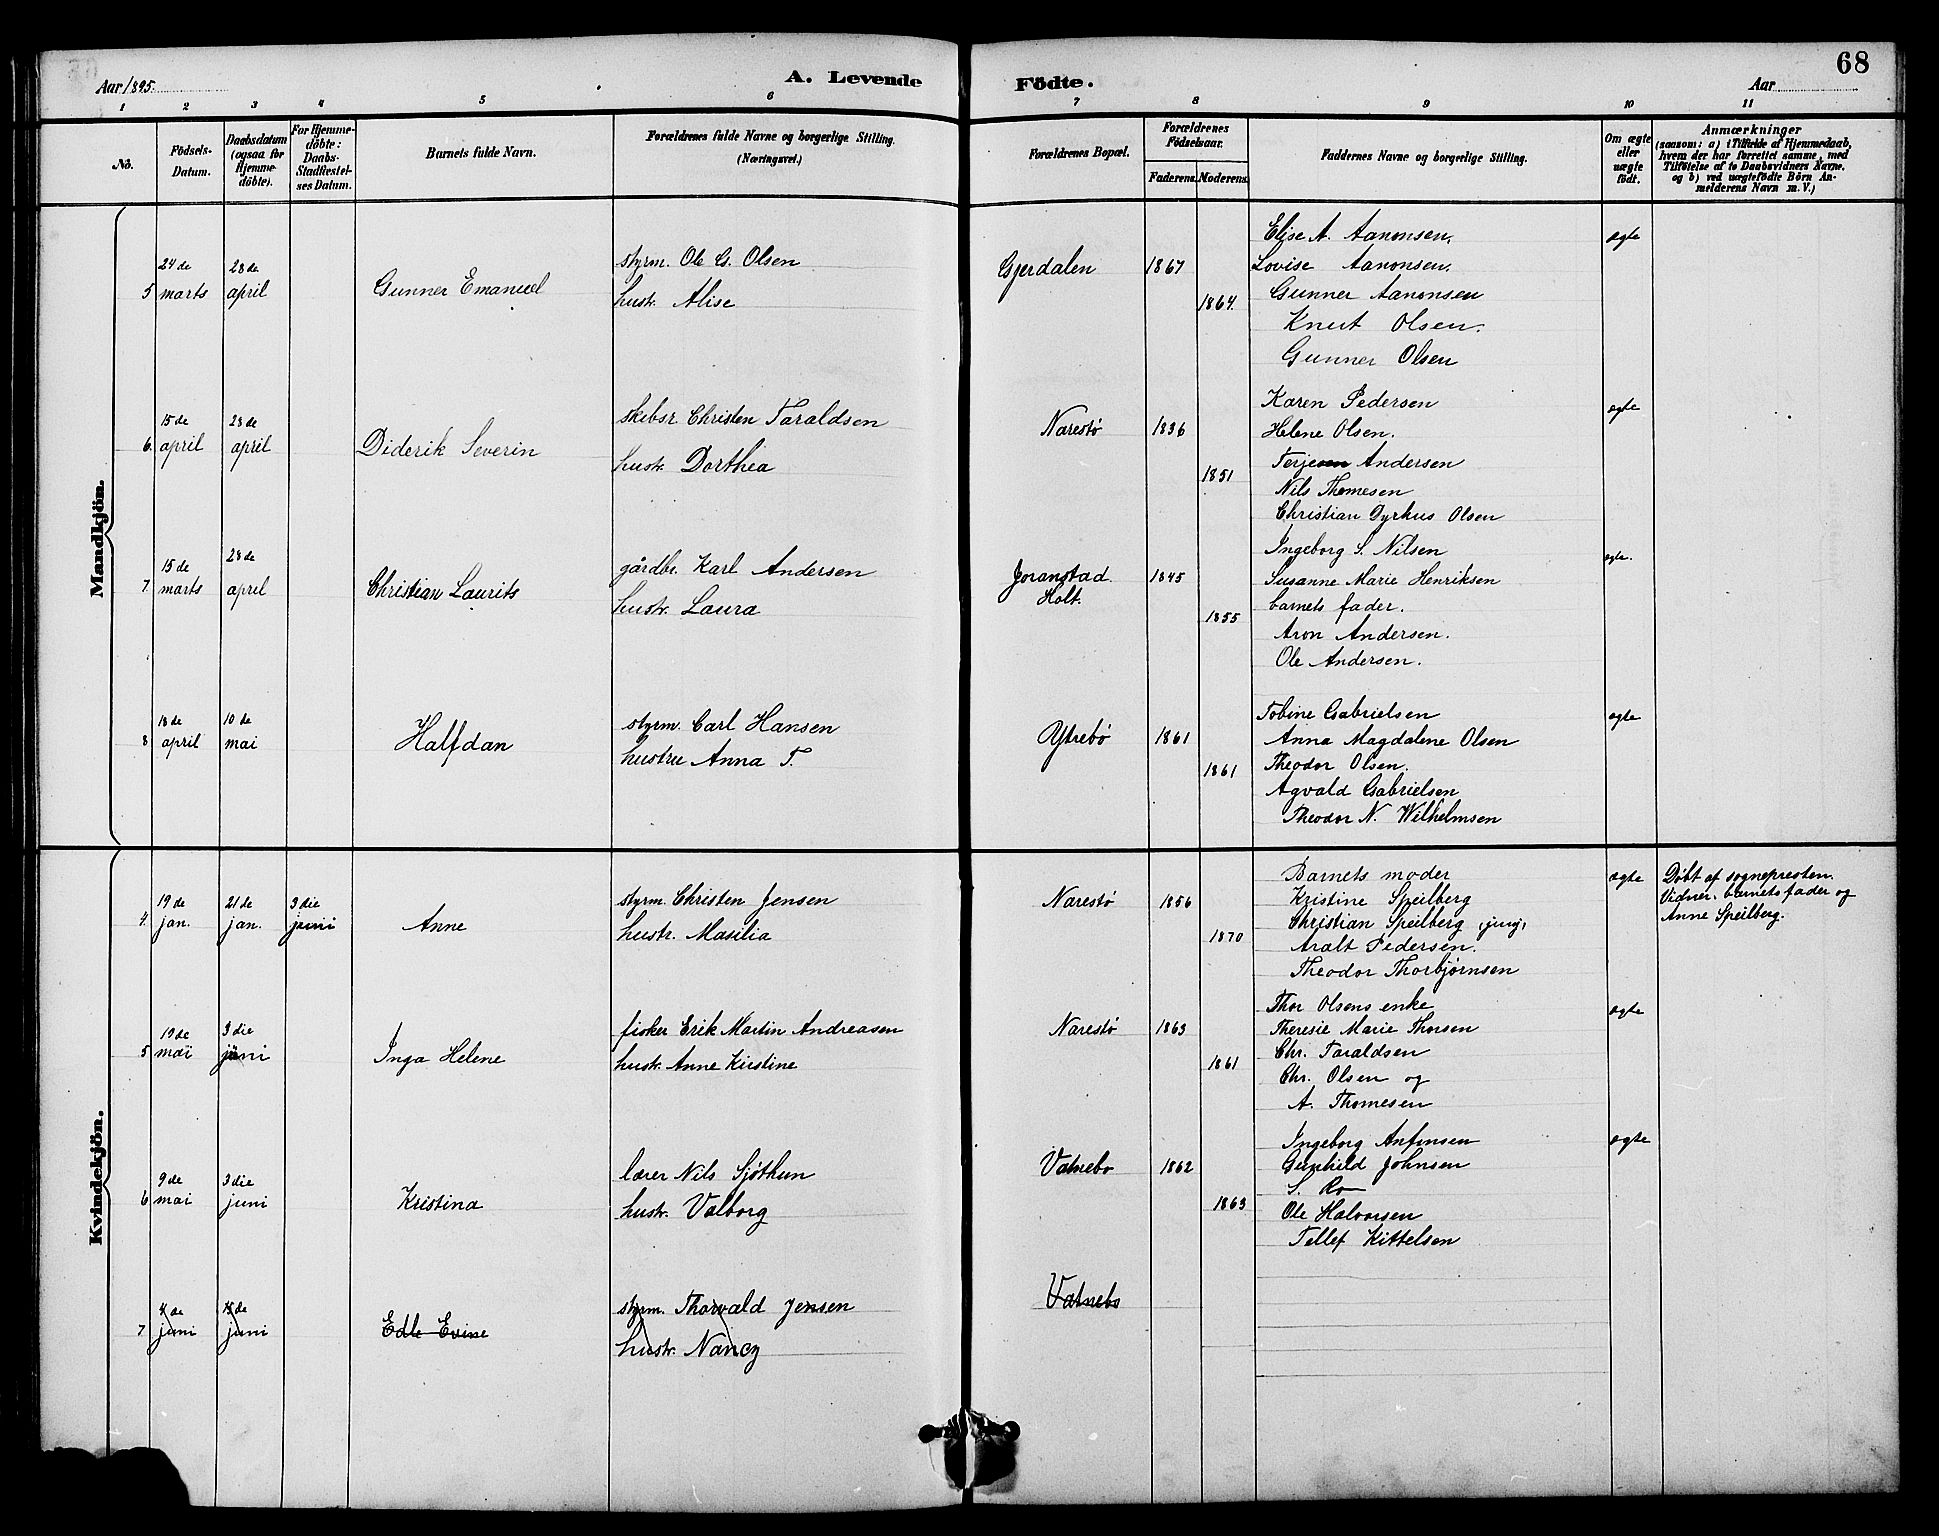 68
Aar 1895.
A. Levende Födte.
Aar
1 2 3 4 5 6 7 8 9 10 11
Nô.
Födsels-Datum.
Daabsdatum (ogsaa for Hjemme-döbte).
For Hjemme-döbte: Daabs-Stadfæstel-ses Datum.
Barnets fulde Navn.
Forældrenes fulde Navne og borgerlige Stilling. (Næringsvei.)
Forældrenes Bopæl.
Forældrenes Födselsaar.
Faderens. Moderens.
Faddernes Navne og borgerlige Stilling.
Om ægte eller uægte födt.
Anmærkninger
(saasom: a) i Tilfælde af Hjemmedaab, hvem der har forrettet samme, med Tilföielse af to Daabsvidners Navne, og b) ved uægtefödte Börn An-melderens Navn m. V.)
Mandkjön.
5 24de marts 28de april
Gunner Emanuel
styrm. Ole G. Olsen
hustr. Alise
Gjerdalen 1867
1864.
Elise A. Aanonsen.
Lovise Aanonsen.
Gunner Aanonsen
Knut Olsen.
Gunner Olsen
ægte
6. 15de april 28de april
Diderik Severin
skibsr. Christen Taraldsen
hustr. Dorthea
Narestø 1836
1851
Karen Pedersen
Helene Olsen.
Terjesen Andersen
Nils Thomesen
Christian Dyrhus Olsen
ægte
7 15de marts 28de april
Christian Laurits
gårdbr. Karl Andersen
hustr. Laura
Joranstad Holt. 1845
1855
Ingeborg S. Nilsen
Susanne Marie Henriksen
barnets fader.
Aron Andersen.
Ole Andersen.
ægte.
8 18de april 10de mai
Halfdan
styrm. Carl Hansen
hustru Anna T.
Ytrebø 1861
1861
Tobine Gabrielsen
Anna Magdalene Olsen
Theodor Olsen.
Agvald Gabrielsen
Theodor N. Wilhelmsen
ægte
Kvindekjön.
4. 19de jan. 21de jan. 3die juni
Anne
styrm. Christen Jensen
hustr. Masilia
Narestø 1856
1870
Barnets moder
Kristine Speilberg
Christian Speilberg (jung)
Aralt Pedersen.
Theodor Thorbjørnsen
ægte
Døbt af sognepresten.
Vidner. barnets fader og
Anne Speilberg.
5 19de mai 3die juni
Inga Helene
fisker Erik Martin Andreasen
hustr. Anne Kirstine
Narestø 1863
1861
Thor Olsens enke
Theresie Marie Thorsen
Chr. Taraldsen
Chr. Olsen og
A. Thomesen
ægte
6 9de mai 3die juni
Kristina
lærer Nils Sjøthun
hustr. Valborg
Vatnebo 1862
1863
Ingeborg Anfinsen
Gunhild Johnsen
S. Ro
Ole Halvorsen
Tellef Kittelsen
ægte
7 4de juni juni
Edle Evine
styrm. Thorvald Jensen
hustr. Nancy
Vatnebo